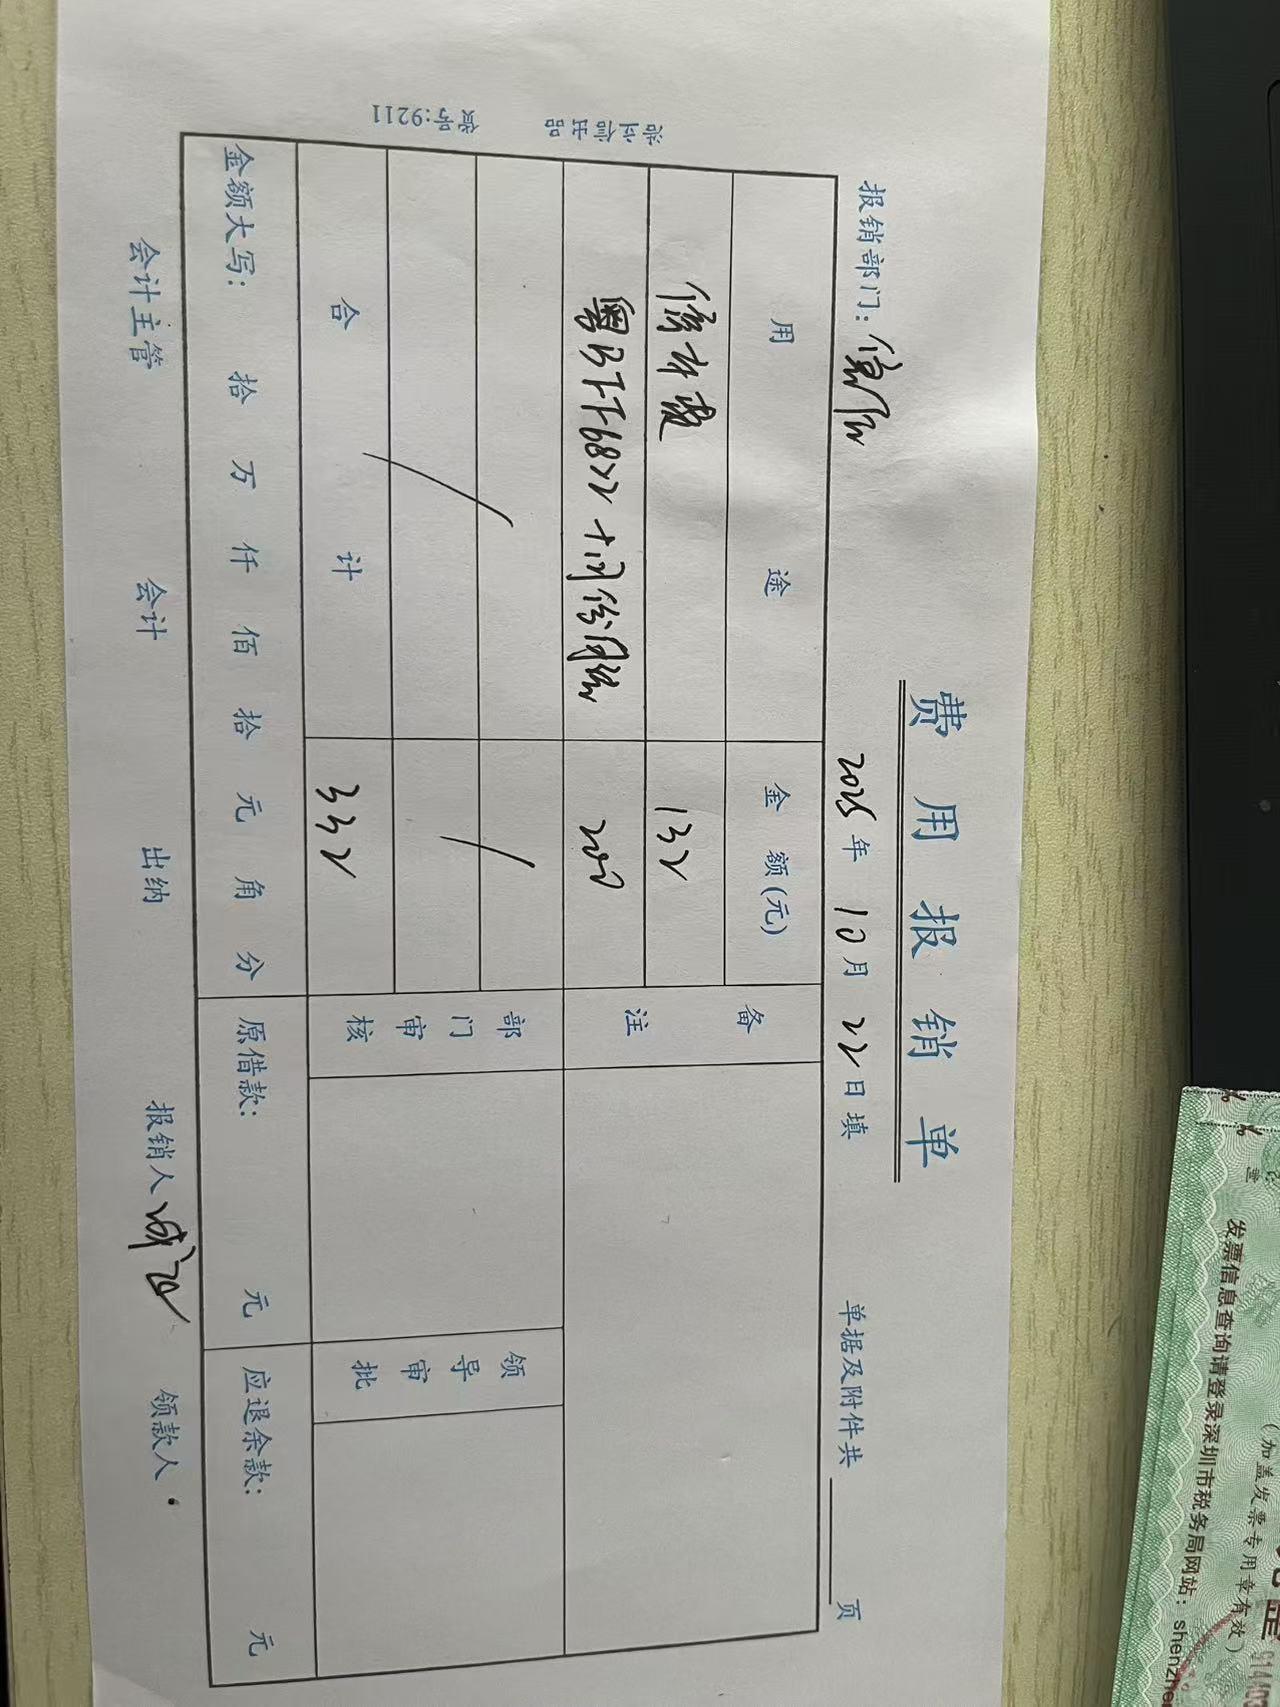 费用报销单
报销部门：
2025年10月22日填
单据及附件共 页
用途
金额(元)
备注
停车费
132
粤BFF6822十月份月租
200
部门审核
领导审批
合计
332
金额大写： 拾 万 仟 佰 拾 元 角 分
原借款： 元
应退余款： 元
会计主管
会计
出纳
报销人
领款人
浩立信出品
货号:9211
发票信息查询请登录深圳市税务局网站：shenzhe
(加盖发票专用章有效)